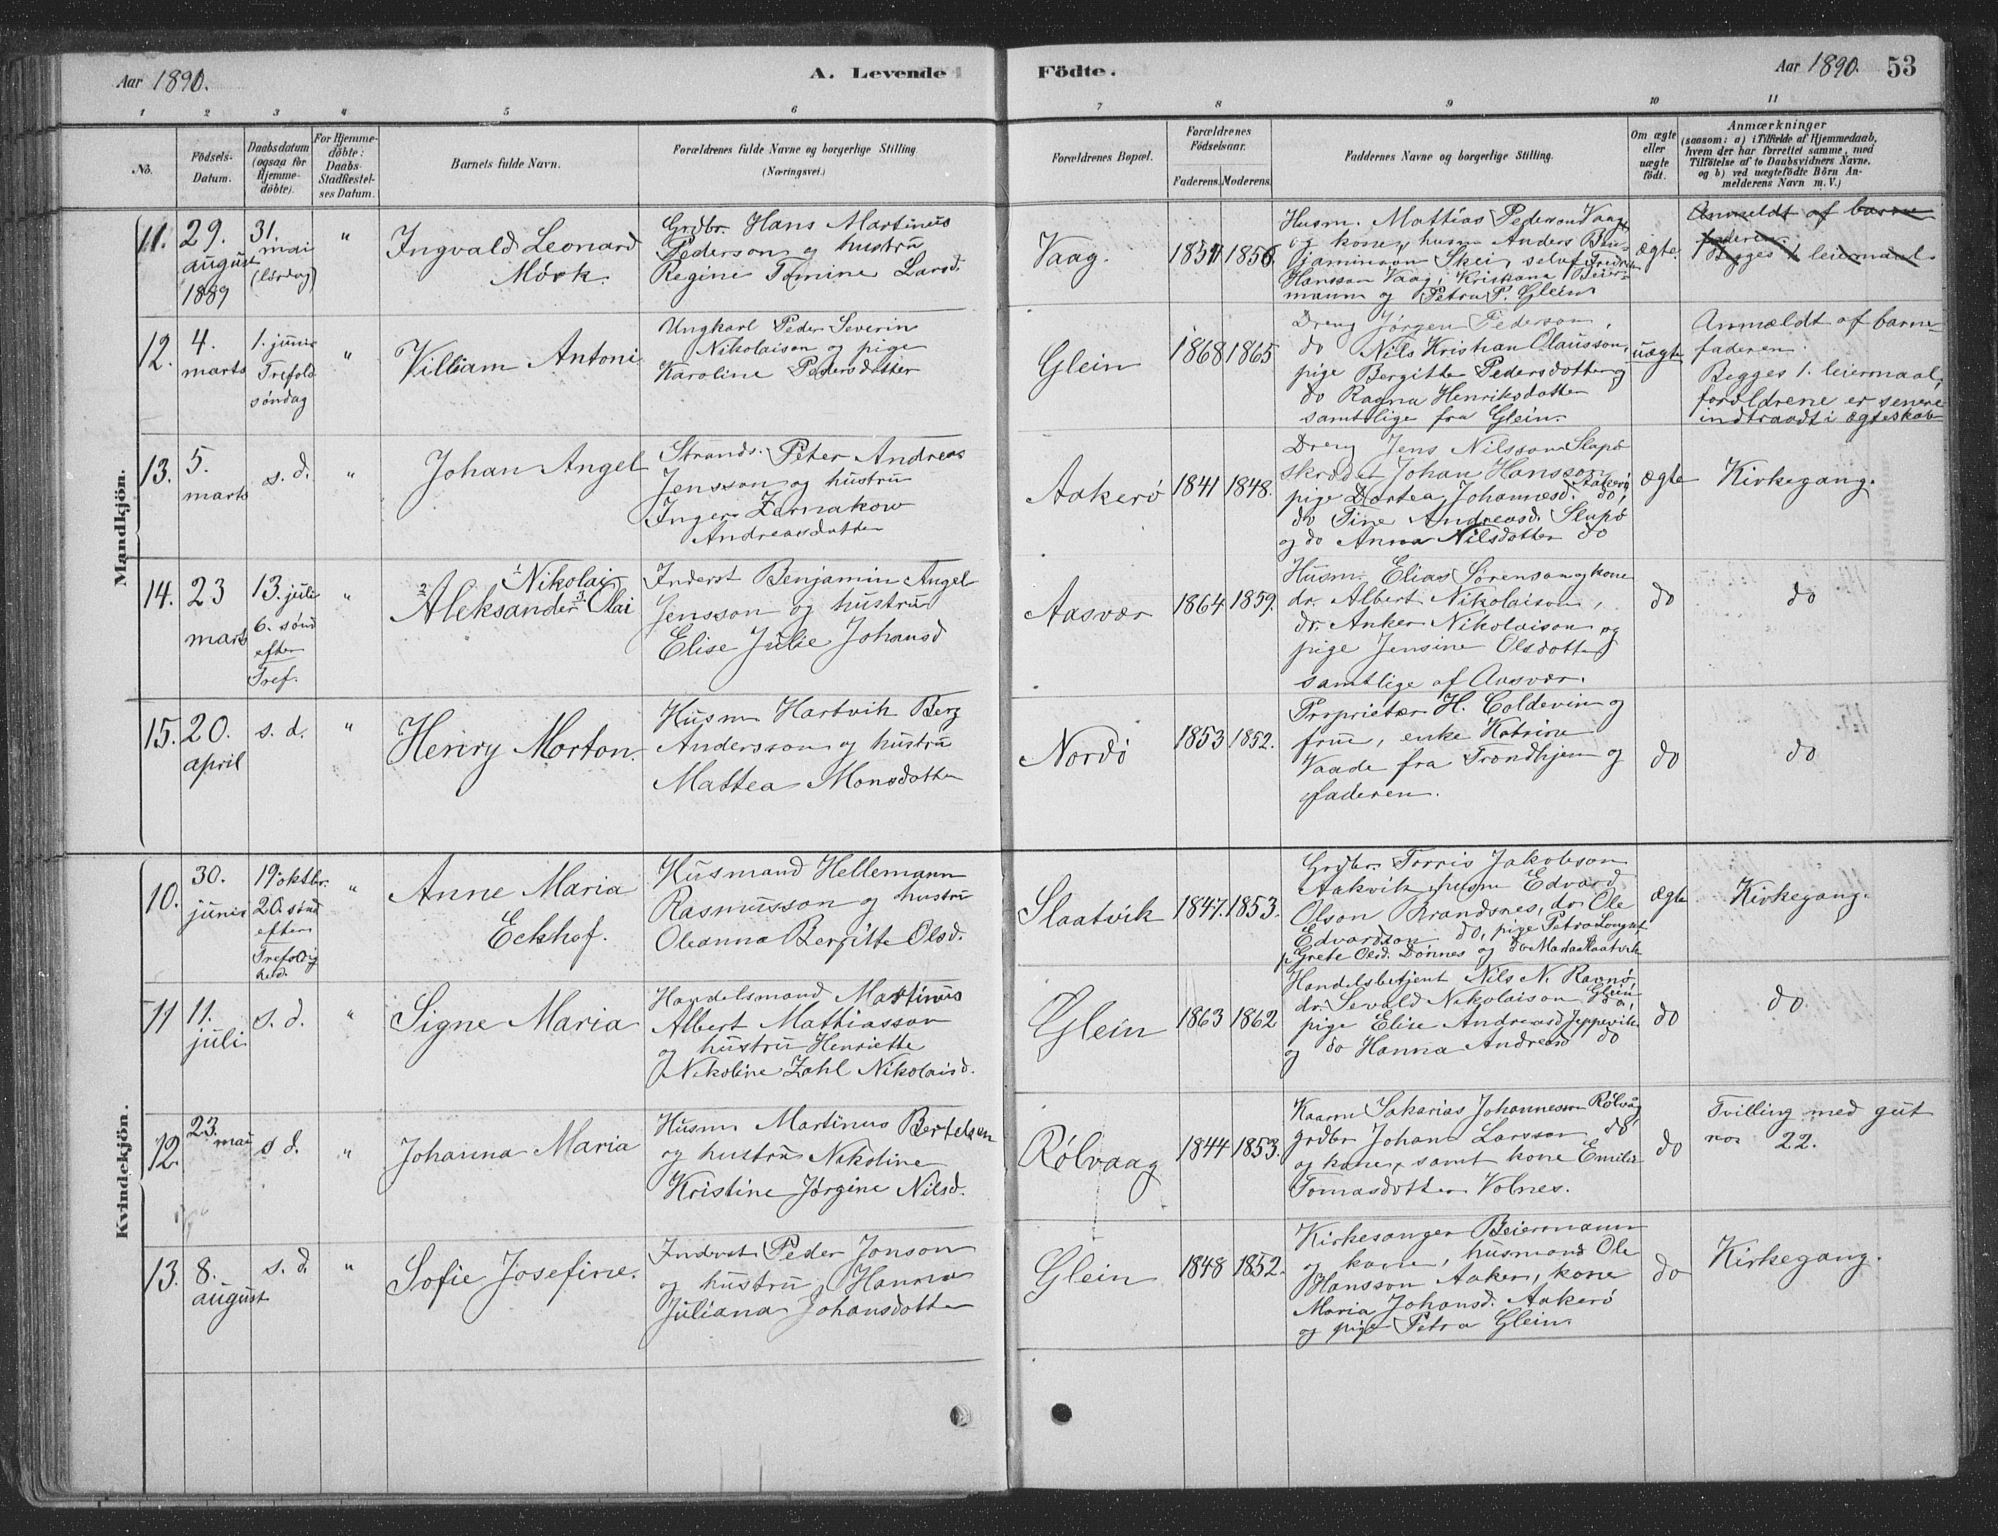 Aar 1890.
A. Levende
Födte.
Aar 1890. 53
1 2 3 4 5 6
7 8 9 10 11
No.
Födsels-
Datum.
Daabsdatum
(ogsaa for
Hjemme-
döbte).
For Hjemme-
döbte:
Daabs-
Stadfæstel-
ses Datum.
Barnets fulde Navn.
Forældrenes fulde Navne og borgerlige Stilling.
(Næringsvei.)
Forældrenes Bopæl.
Forældrenes
Födselsaar.
Faderens. Moderens.
Faddernes Navne og borgerlige Stilling.
Om ægte
eller
uægte
födt.
Anmærkninger
(saasom: a) i Tilfælde af Hjemmedaab,
hvem der har forrettet samme, med
Tilföielse af to Daabsvidners Navne,
og b) ved uægtefödte Börn An-
melderens Navn m. V.)
Mandkjön.
11.
29.
august
1889
31.
mai
(lørdag)
"
Ingvald Leonard
Mörk.
Grdbr. Hans Martinus
Pederson og hustru
Regine Tomine Larsd.
Vaag.
1851
1856
Husm. Mattias Pederson Vaag
og kone, husm Anders Ben-
jaminson Skei, selv Fredrik
Hansson Vaag, Kristiana Beier-
mann og Petra P. Glein
ægte.
Anmeldt af barne
faderen.
Begges 1. leiermaal.
12.
4.
marts
1. juni
Trefold.
søndag
"
Villiam Antoni
Ungkarl Peder Severin
Nikolaison og pige
Karoline Pedersdotter
Glein
1868
1865
Dreng Jørgen Pederson,
do Nils Kristian Olausson,
pige Bergitte Pedersdotter og
do Ragna Henriksdotter
samtlige fra Glein.
uægte
Anmældt af barne-
faderen.
Begges 1. leiermaal,
forældrene er senere
indtraadt i ægteskab
13.
5.
marts
s. d.
"
Johan Angel
Strands. Peter Andreas
Jensson og hustru
Inger Zernakow
Andreasdotter
Aakerö
1841
1848.
Dreng Jens Nilsson Slapö
skræder Johan Hansson Aakerö
pige Dortea Johannesd. do,
do Tine Andreasd. Slapö
og do Anna Nilsdotter do
ægte
Kirkegang.
14.
23
marts
13. juli
6. sönd
efter
Tref.
"
1 Nikolai
2 Aleksander 3 Olai
Inderst Benjamin Angel
Jensson og hustru
Elise Julie Johansd
Aasvær
1864
1859.
Husm. Elias Sörenson og kone
dr. Albert Nikolaison,
dr. Anker Nikolaison og
pige Jensine Olsdotter
samtlige af Aasvær.
do
do
15.
20.
april
s. d.
"
Henry Morton.
Husm Hartvik Berg
Andersson og hustru
Mattea Monsdotter
Nordö
1853
1852.
Proprietær H. Coldevin og
frue, enke Katrine
Vaade fra Trondhjem og
faderen.
do
do
Kvindekjön.
10.
30.
juni
19 oktbr.
20. sönd
efter
Trefoldig
hed.
"
Anne Maria
Eckhof.
Husmand Hellemann
Rasmusson og hustru
Oleanna Bergitte Olsd.
Slaatvik
1847.
1853.
Grdbr. Torris Jakobson
Aakvik, husm Edvard
Olson Brandsnes, dr. Ole
Edvardson do, pige Petra
Grete Olsd. Dønnes og do Slaatvik
ægte
Kirkegang.
11
11.
juli
s. d.
"
Signe Maria
Handelsmand Martinus
Albert Mathiasson
og hustru Henriette
Nikoline Zahl Nikolaisd.
Glein
1863
1862
Handelsbetjent Nils N. Ravnö,
dr. Sevald Nikolaison Glein
pige Elise Andreasd Jeppevik
og do Hanna Andreasd do
do
do.
12.
23.
mai
s d.
"
Johanna Maria
Husm Martinus Bertelsen
og hustru Nikoline
Kristine Jørgine Nilsd.
Rølvaag
1844
1853.
Kaarm Sakarias Johannesson Rølvåg
grdbr Johan Larsson do,
og kone, samt kone Emilie
Tomasdotter Volnes.
do
Tvilling med gut
no. 22.
13.
8.
august
s. d.
"
Sofie Josefine.
Inderst Peder Jonson
og hustru Hanna
Juliana Johansdotter
Glein
1848
1852.
Kirkesanger Beiermann
og kone, husmand Ole
Hansson Aaker, kone
Maria Johansd. Aakerö
og pige Petra Glein
do
Kirkegang.